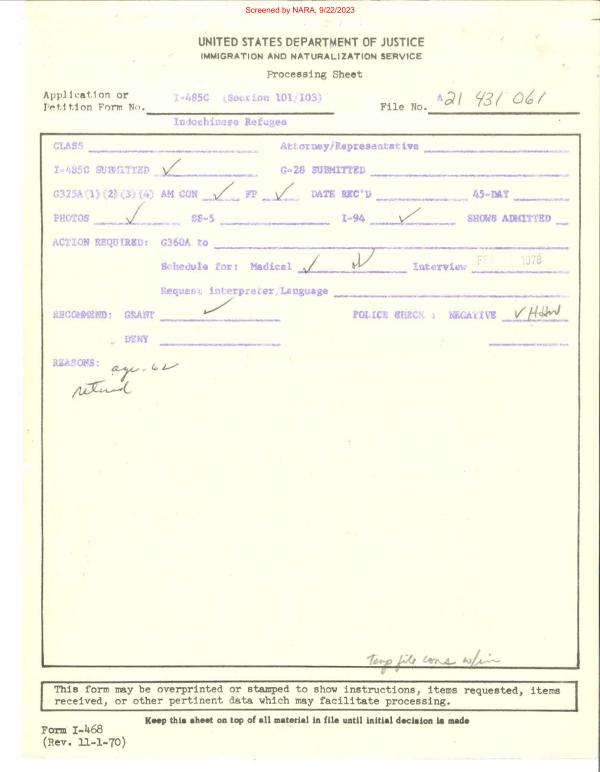 Screened by NARA, 9/22/2023
UNITED STATES DEPARTMENT OF JUSTICE
IMMIGRATION AND NATURALIZATION SERVICE
Processing Sheet
Application or Petition Form No. I-485C (Section 101/103)
Indochinese Refugee
File No. A21 431 061
CLASS Attorney/Representative
I-485C SUBMITTED ✓ G-28 SUBMITTED
G325A(1)(2)(3)(4) AM CON ✓ FP ✓ DATE REC'D 45-DAY
PHOTOS ✓ SS-5 I-94 ✓ SHOWS ADMITTED
ACTION REQUIRED: G360A to
Schedule for: Medical ✓ Interview 1978
Request interpreter/Language
RECOMMEND: GRANT ✓ POLICE CHECK : NEGATIVE ✓
DENY
REASONS: age-62
retired
Temp file cons w/in
This form may be overprinted or stamped to show instructions, items requested, items
received, or other pertinent data which may facilitate processing.
Keep this sheet on top of all material in file until initial decision is made
Form I-468
(Rev. 11-1-70)